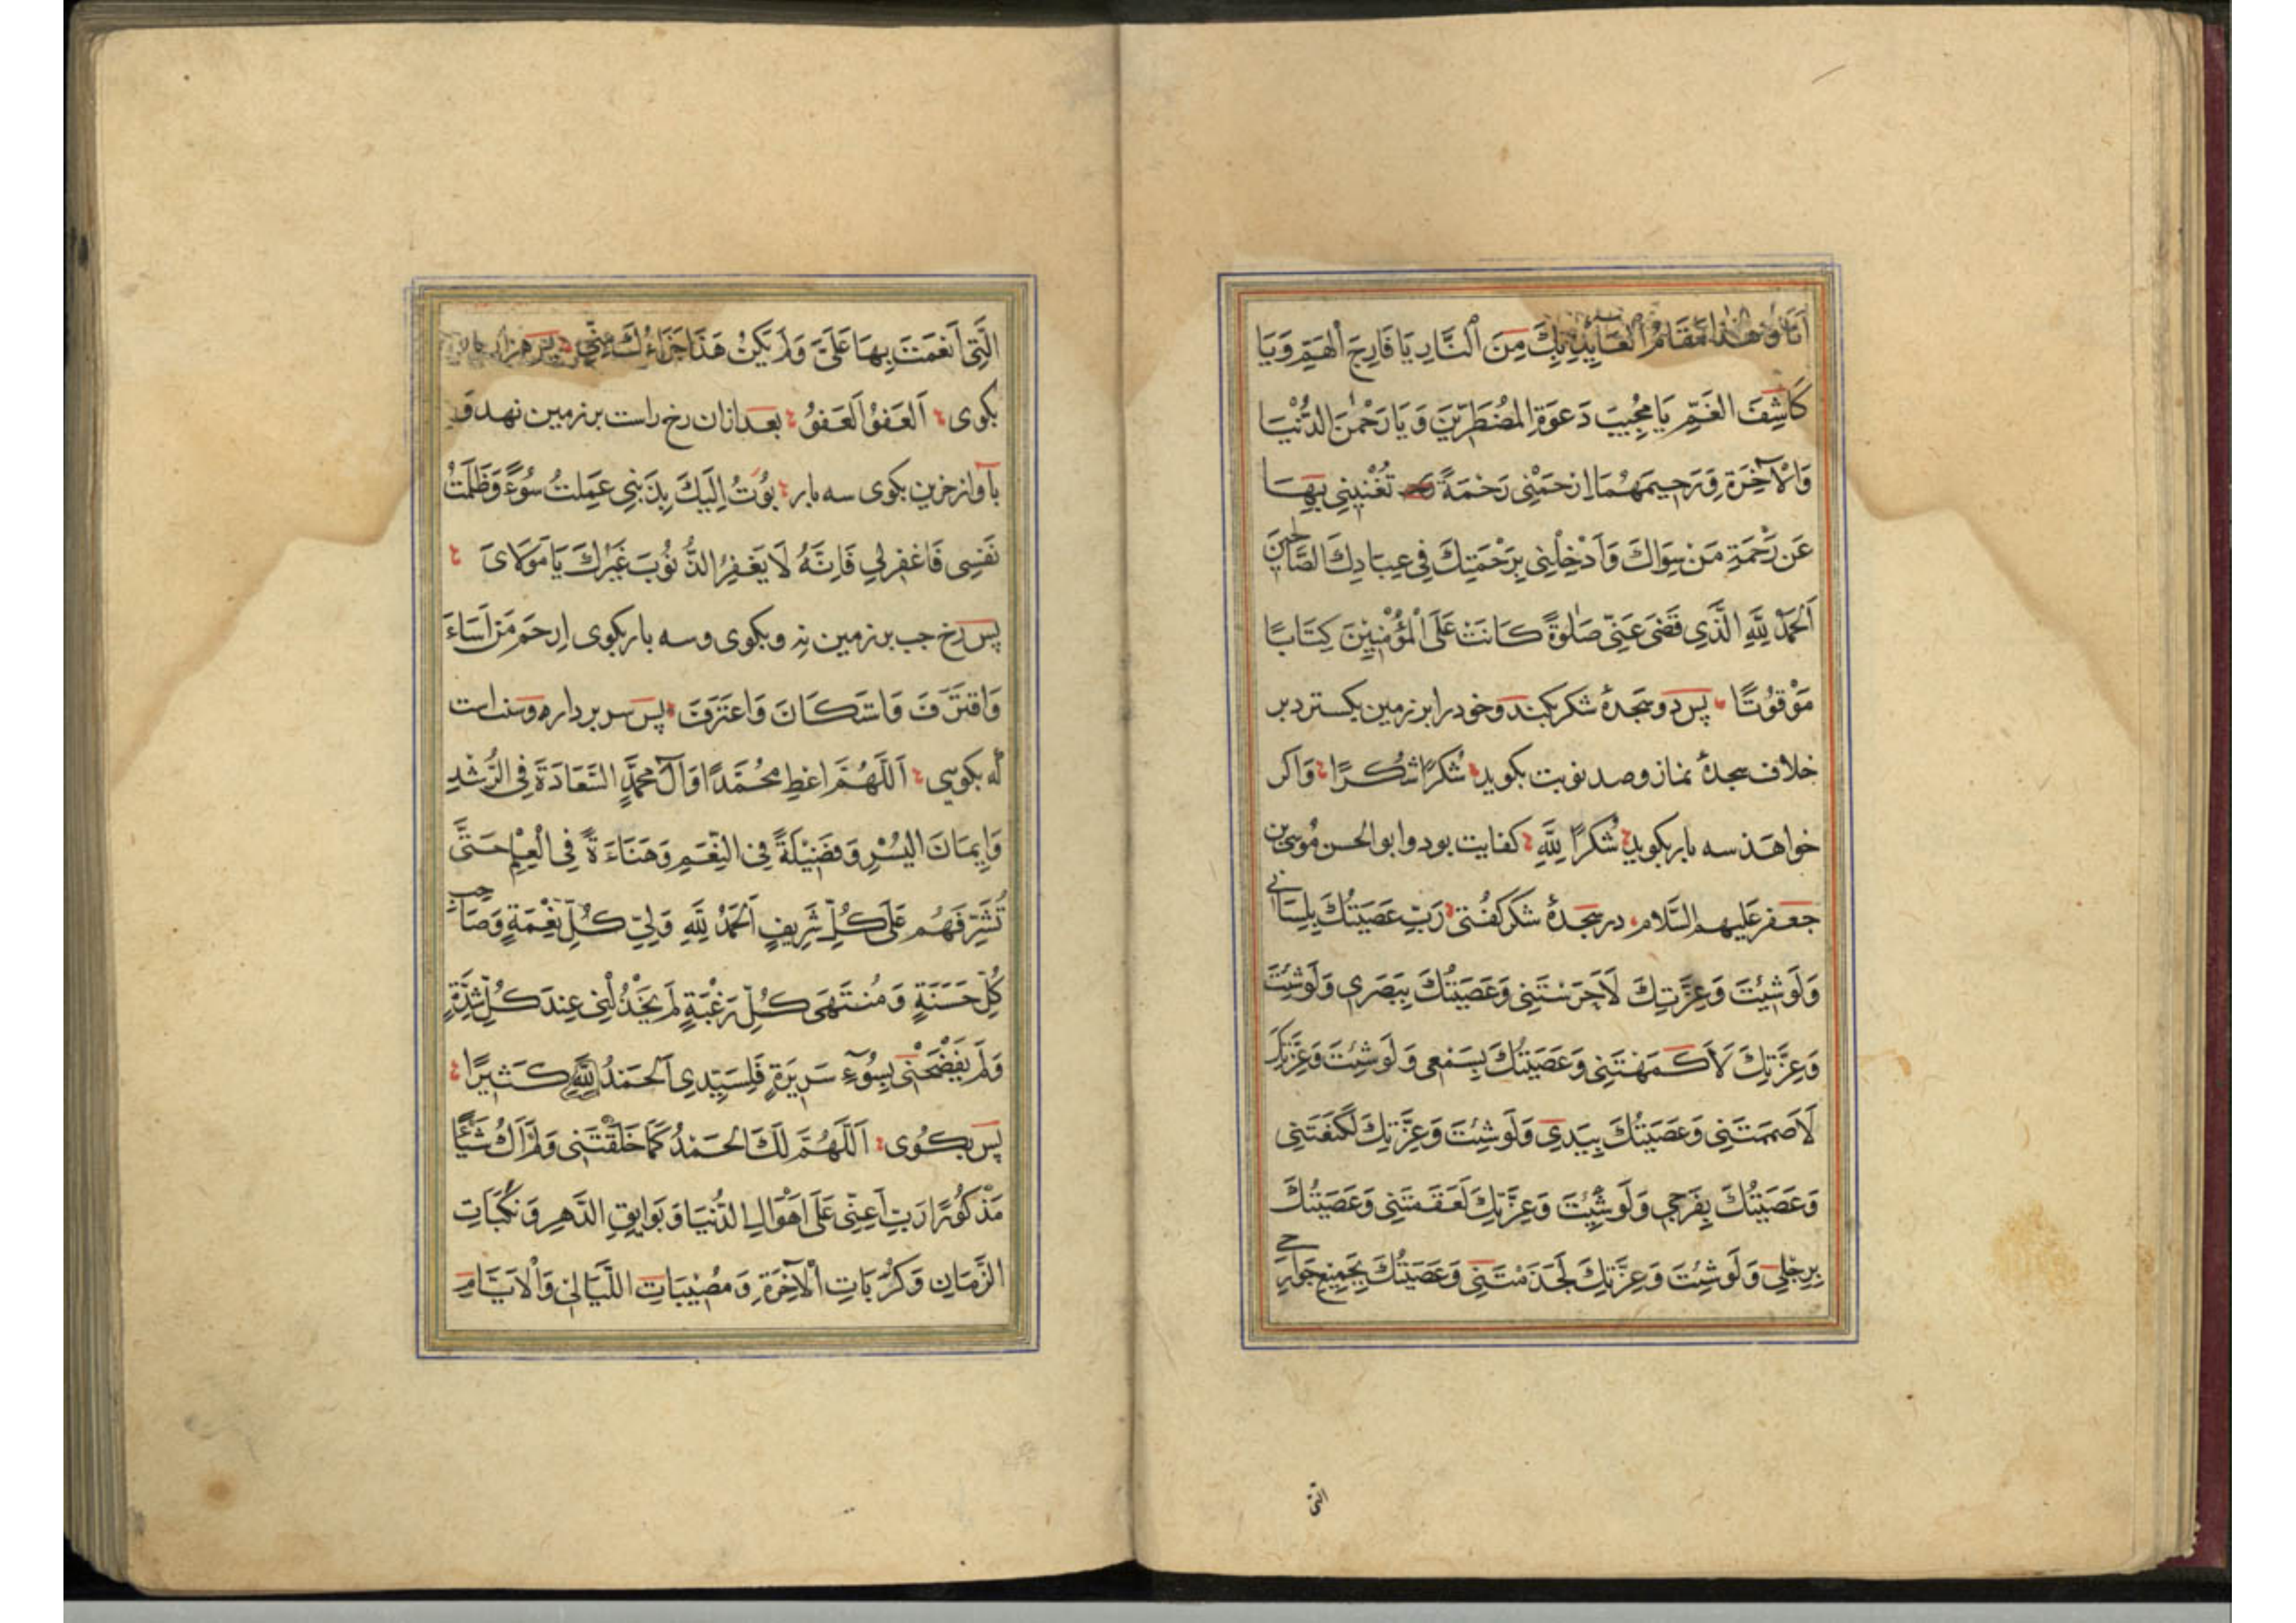 هٰذَا مَقَامُ الْعَائِذِ بِكَ مِنَ النَّارِ يَا فَارِجَ الْهَمِّ وَيَا
كَاشِفَ الْغَمِّ يَا مُجِيبَ دَعوَةِ المُضْطَرِّينَ وَ يَا رَحْمٰنَ الدُّنْيَا
وَالْآخِرَةِ وَرَحِيمَهُمَا اِرْحَمْنِى رَحْمَةً تُغْنِينِي بِهَا
عَن رَّحْمَةِ مَنْ سِوَاكَ وَأَدْخِلْنِى بِرَحْمَتِكَ فِى عِبَادِكَ الصَّالِحِينَ
اَلْحَمْدُ لِلَّهِ الَّذِي قَضَى عَنِّى صَلٰوةً كَانَتْ عَلَى الْمُؤْمِنِينَ كِتَابًا
مَوْقُوتًا پس دو سجدهٔ شكر بكند وخود را بر زمين بكسترد بر
خلاف سجدهٔ نماز و صد نوبت بكويد شُكرًا شُكرًا وَاكر
خواهَد سه بار بكويد شُكرًا لِلَّهِ كفايت بود و ابو الحسن مُوسَى بن
جعفر عَليهم السَّلام در سجدهٔ شكر كفُتى رَبِّ عَصَيتُكَ بِلِسَانِى
وَلَو شِئتَ وَعِزَّتِكَ لَأَخرَستَنِى وَعَصَيتُكَ بِبَصَرِى وَلَو شِئتَ
وَعِزَّتِكَ لَأَكمَهتَنِى وَعَصَيتُكَ بِسَمعِى وَ لَو شِئتَ وَعِزَّتِكَ
لَأَصمَمتَنِى وَعَصَيتُكَ بِيَدِى وَلَو شِئتَ وَعِزَّتِكَ لَكَنَّعتَنِى
وَعَصَيتُكَ بِفَرجِي وَلَو شِئتَ وَعِزَّتِكَ لَعَقَمتَنِى وَعَصَيتُكَ
بِرِجلِى وَ لَو شِئتَ وَ عِزَّتِكَ لَجَذَمتَنِى وَعَصَيتُكَ بِجَمِيعِ جَوَارِحِى
الَّتِى
الَّتِى أَنعَمتَ بِهَا عَلَىَّ وَلَم يَكُنْ هَذَا جَزَاءُكَ مِنِّي پس هزار بار
بكوى اَلعَفوُ اَلعَفوُ بعد ازان رخ راست بر زمين نهد وَ
بآواز حزين بكوى سه بار بُؤتُ اِلَيكَ بِذَنبِى عَمِلتُ سُوءً وَظَلَمتُ
نَفسِى فَاغفِر لِي فَاِنَّهُ لَا يَغفِرُ الذُّنُوبَ غَيرُكَ يَا مَولَاىَ
پس رخ چپ بر زمين نهد وبكوى وسه بار بكوى اِرحَم مَن اَسَاءَ
وَاقتَرَفَ وَاستَكَانَ وَاعتَرَفَ پس سر بر داره وسنت است
كه بكويى اَللَّهُمَّ اعطِ مُحَمَّدًا وَآلَ مُحَمَّدٍ السَّعَادَةَ فِى الرُّشدِ
وَاِيمَانَ اليُسرِ وَفَضِيلَةً فِى النِّعَمِ وَهَنَاءَةً فِى الْعِلْمِ حَتَّى
تُشَرِّفَهُم عَلَى كُلِّ شَرِيفٍ اَلحَمدُ لِلَّهِ وَلِيِّ كُلِّ نِعْمَةٍ وَصَاحِبِ
كُلِّ حَسَنَةٍ وَ مُنتَهَى كُلِّ رَغْبَةٍ لَم يَخْذُلْنِى عِندَ كُلِّ شِدَّةٍ
وَلَم يَفضَحْنِى بِسُوءِ سَرِيرَةٍ فَلِسَيِّدِى اَلحَمدُ لِلَّهِ كَثِيرًا
پس بكوى اَللَّهُمَّ لَكَ الحَمدُ كَمَا خَلَقْتَنِى وَلَم اَكُ شَيئًا
مَذْكُورًا رَبِّ اَعِنِّى عَلَى اَهْوَالِ الدُّنيَا وَ بَوَايِقِ الدَّهرِ وَ نَكَبَاتِ
الزَّمَانِ وَكُرُبَاتِ الْآخِرَةِ وَ مُصِيبَاتِ اللَّيَالِى وَالْاَيَّامِ